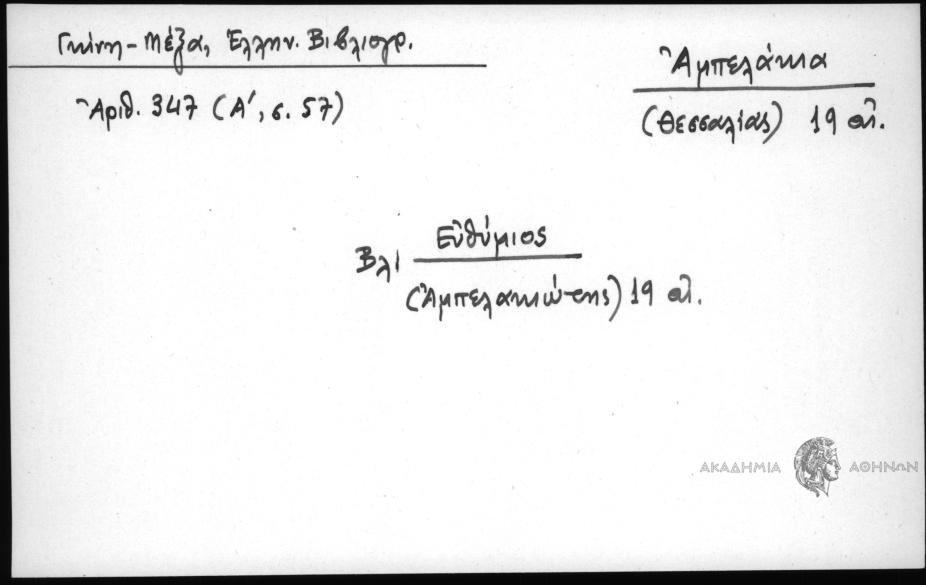 Γκίνη - Μέξα, Ἑλλην. Βιβλιογρ.
Ἀριθ. 347 (Α', σ. 57)
Ἀμπελάκια
(Θεσσαλίας) 19 αἰ.
Βλ. Εὐθύμιος
(Ἀμπελακιώτης) 19 αἰ.
ΑΚΑΔΗΜΙΑ ΑΘΗΝΩΝ